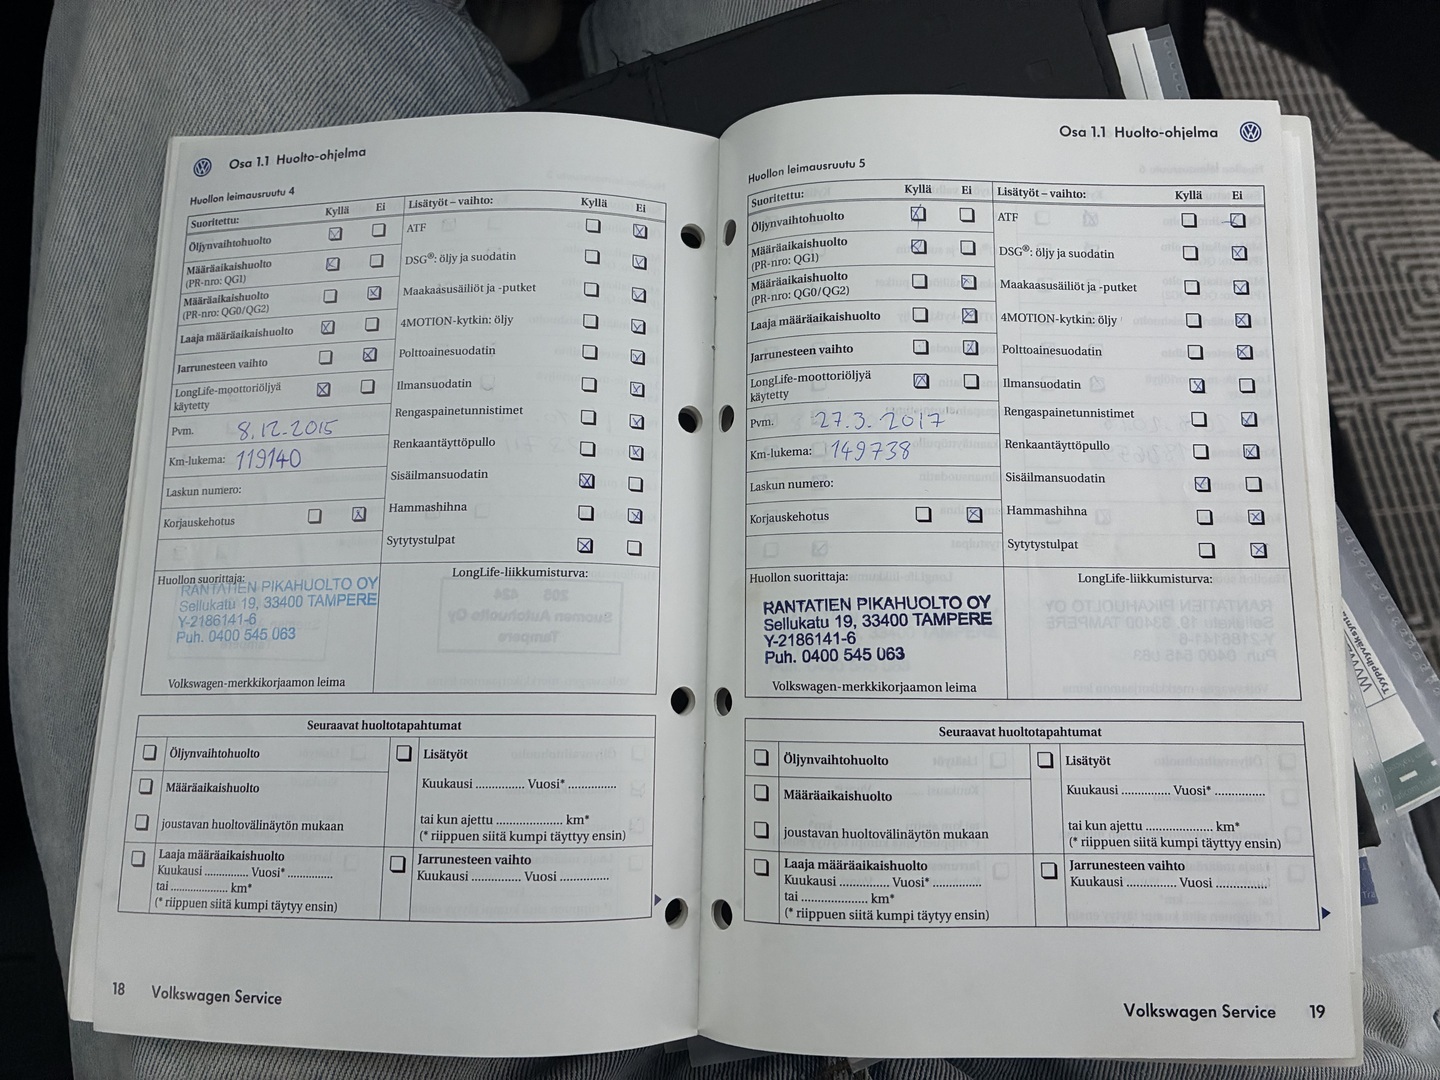 Osa 1.1 Huolto-ohjelma
Huollon leimausruutu 4
Suoritettu: Kyllä Ei
Öljynvaihtohuolto
Määräaikaishuolto
(PR-nro: QG1)
Määräaikaishuolto
(PR-nro: QG0/QG2)
Laaja määräaikaishuolto
Jarrunesteen vaihto
LongLife-moottoriöljyä
käytetty
Pvm. 8.12.2015
Km-lukema: 119140
Laskun numero:
Korjauskehotus
Lisätyöt – vaihto: Kyllä Ei
ATF
DSG®: öljy ja suodatin
Maakaasusäiliöt ja -putket
4MOTION-kytkin: öljy
Polttoainesuodatin
Ilmansuodatin
Rengaspainetunnistimet
Renkaantäyttöpullo
Sisäilmansuodatin
Hammashihna
Sytytystulpat
Huollon suorittaja:
RANTATIEN PIKAHUOLTO OY
Sellukatu 19, 33400 TAMPERE
Y-2186141-6
Puh. 0400 545 063
Volkswagen-merkkikorjaamon leima
LongLife-liikkumisturva:
Seuraavat huoltotapahtumat
Öljynvaihtohuolto
Määräaikaishuolto
joustavan huoltovälinäytön mukaan
Lisätyöt
Kuukausi .............. Vuosi* ..............
tai kun ajettu .................... km*
(* riippuen siitä kumpi täyttyy ensin)
Laaja määräaikaishuolto
Kuukausi ............. Vuosi* .............
tai .................... km*
(* riippuen siitä kumpi täytyy ensin)
Jarrunesteen vaihto
Kuukausi .............. Vuosi ..............
18 Volkswagen Service
Osa 1.1 Huolto-ohjelma
Huollon leimausruutu 5
Suoritettu: Kyllä Ei
Öljynvaihtohuolto
Määräaikaishuolto
(PR-nro: QG1)
Määräaikaishuolto
(PR-nro: QG0/QG2)
Laaja määräaikaishuolto
Jarrunesteen vaihto
LongLife-moottoriöljyä
käytetty
Pvm. 27.3.2017
Km-lukema: 149738
Laskun numero:
Korjauskehotus
Lisätyöt – vaihto: Kyllä Ei
ATF
DSG®: öljy ja suodatin
Maakaasusäiliöt ja -putket
4MOTION-kytkin: öljy
Polttoainesuodatin
Ilmansuodatin
Rengaspainetunnistimet
Renkaantäyttöpullo
Sisäilmansuodatin
Hammashihna
Sytytystulpat
Huollon suorittaja:
RANTATIEN PIKAHUOLTO OY
Sellukatu 19, 33400 TAMPERE
Y-2186141-6
Puh. 0400 545 063
Volkswagen-merkkikorjaamon leima
LongLife-liikkumisturva:
Seuraavat huoltotapahtumat
Öljynvaihtohuolto
Määräaikaishuolto
joustavan huoltovälinäytön mukaan
Lisätyöt
Kuukausi .............. Vuosi* ..............
tai kun ajettu .................... km*
(* riippuen siitä kumpi täyttyy ensin)
Laaja määräaikaishuolto
Kuukausi .............. Vuosi* ..............
tai .................... km*
(* riippuen siitä kumpi täytyy ensin)
Jarrunesteen vaihto
Kuukausi .............. Vuosi ..............
Volkswagen Service 19